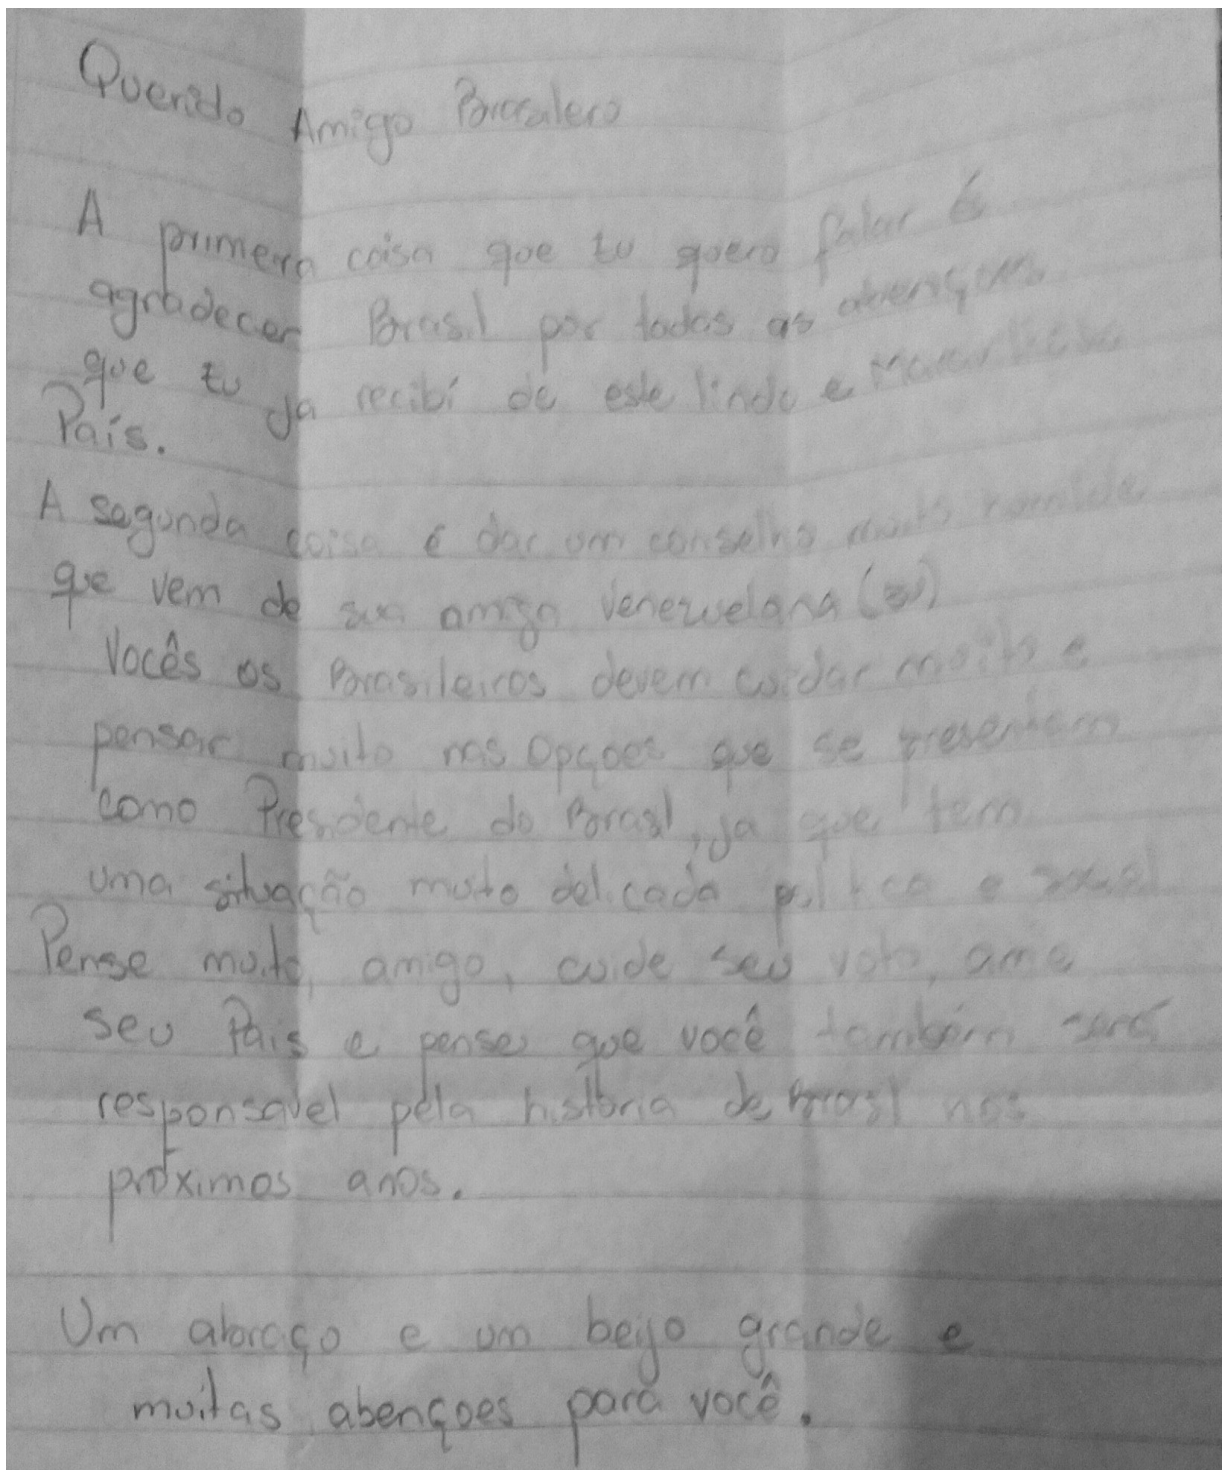 Querido Amigo Brasalero
A primera coisa que eu quero falar é
agradecer Brasil por todas as abençoes
que eu ja recibí de este lindo e Maravilloso
País.
A segunda coisa é dar um conselho muito
que vem de sua amiga Venezuelana (eu)
Vocês os Brasileiros devem cuidar muito e
pensar muito nas Opçoes que se presentam
como Presidente do Brasil, ja que tem
uma situação muito delicada politica e social
Pense muito, amigo, cuide seu voto, ame
seu País e pense que você também será
responsavel pela história de Brasil nos
próximos anos.
Um abraço e um beijo grande e
muitas abençoes para você.